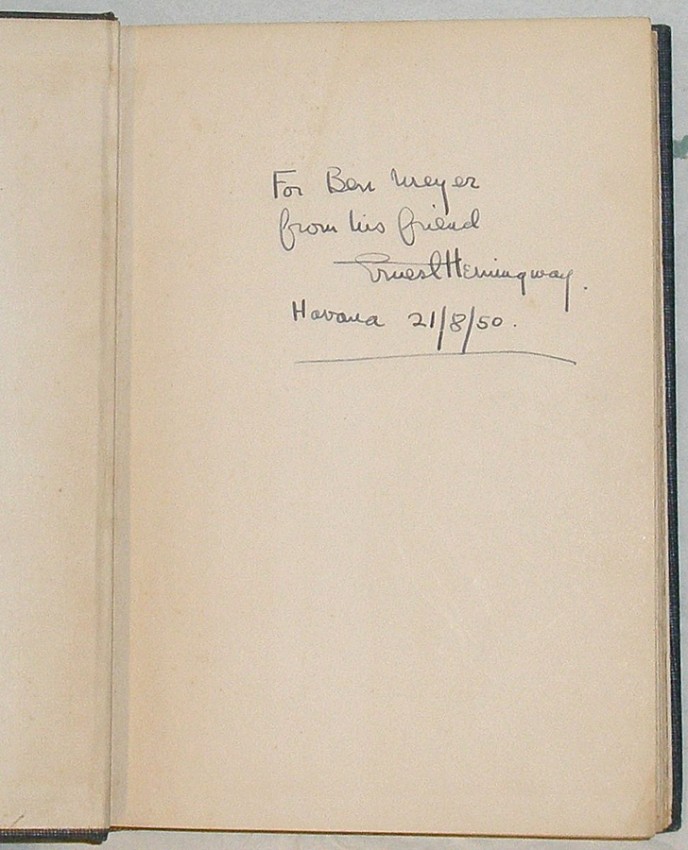 For Ben Meyer
from his friend
Ernest Hemingway.
Havana 21/8/50.